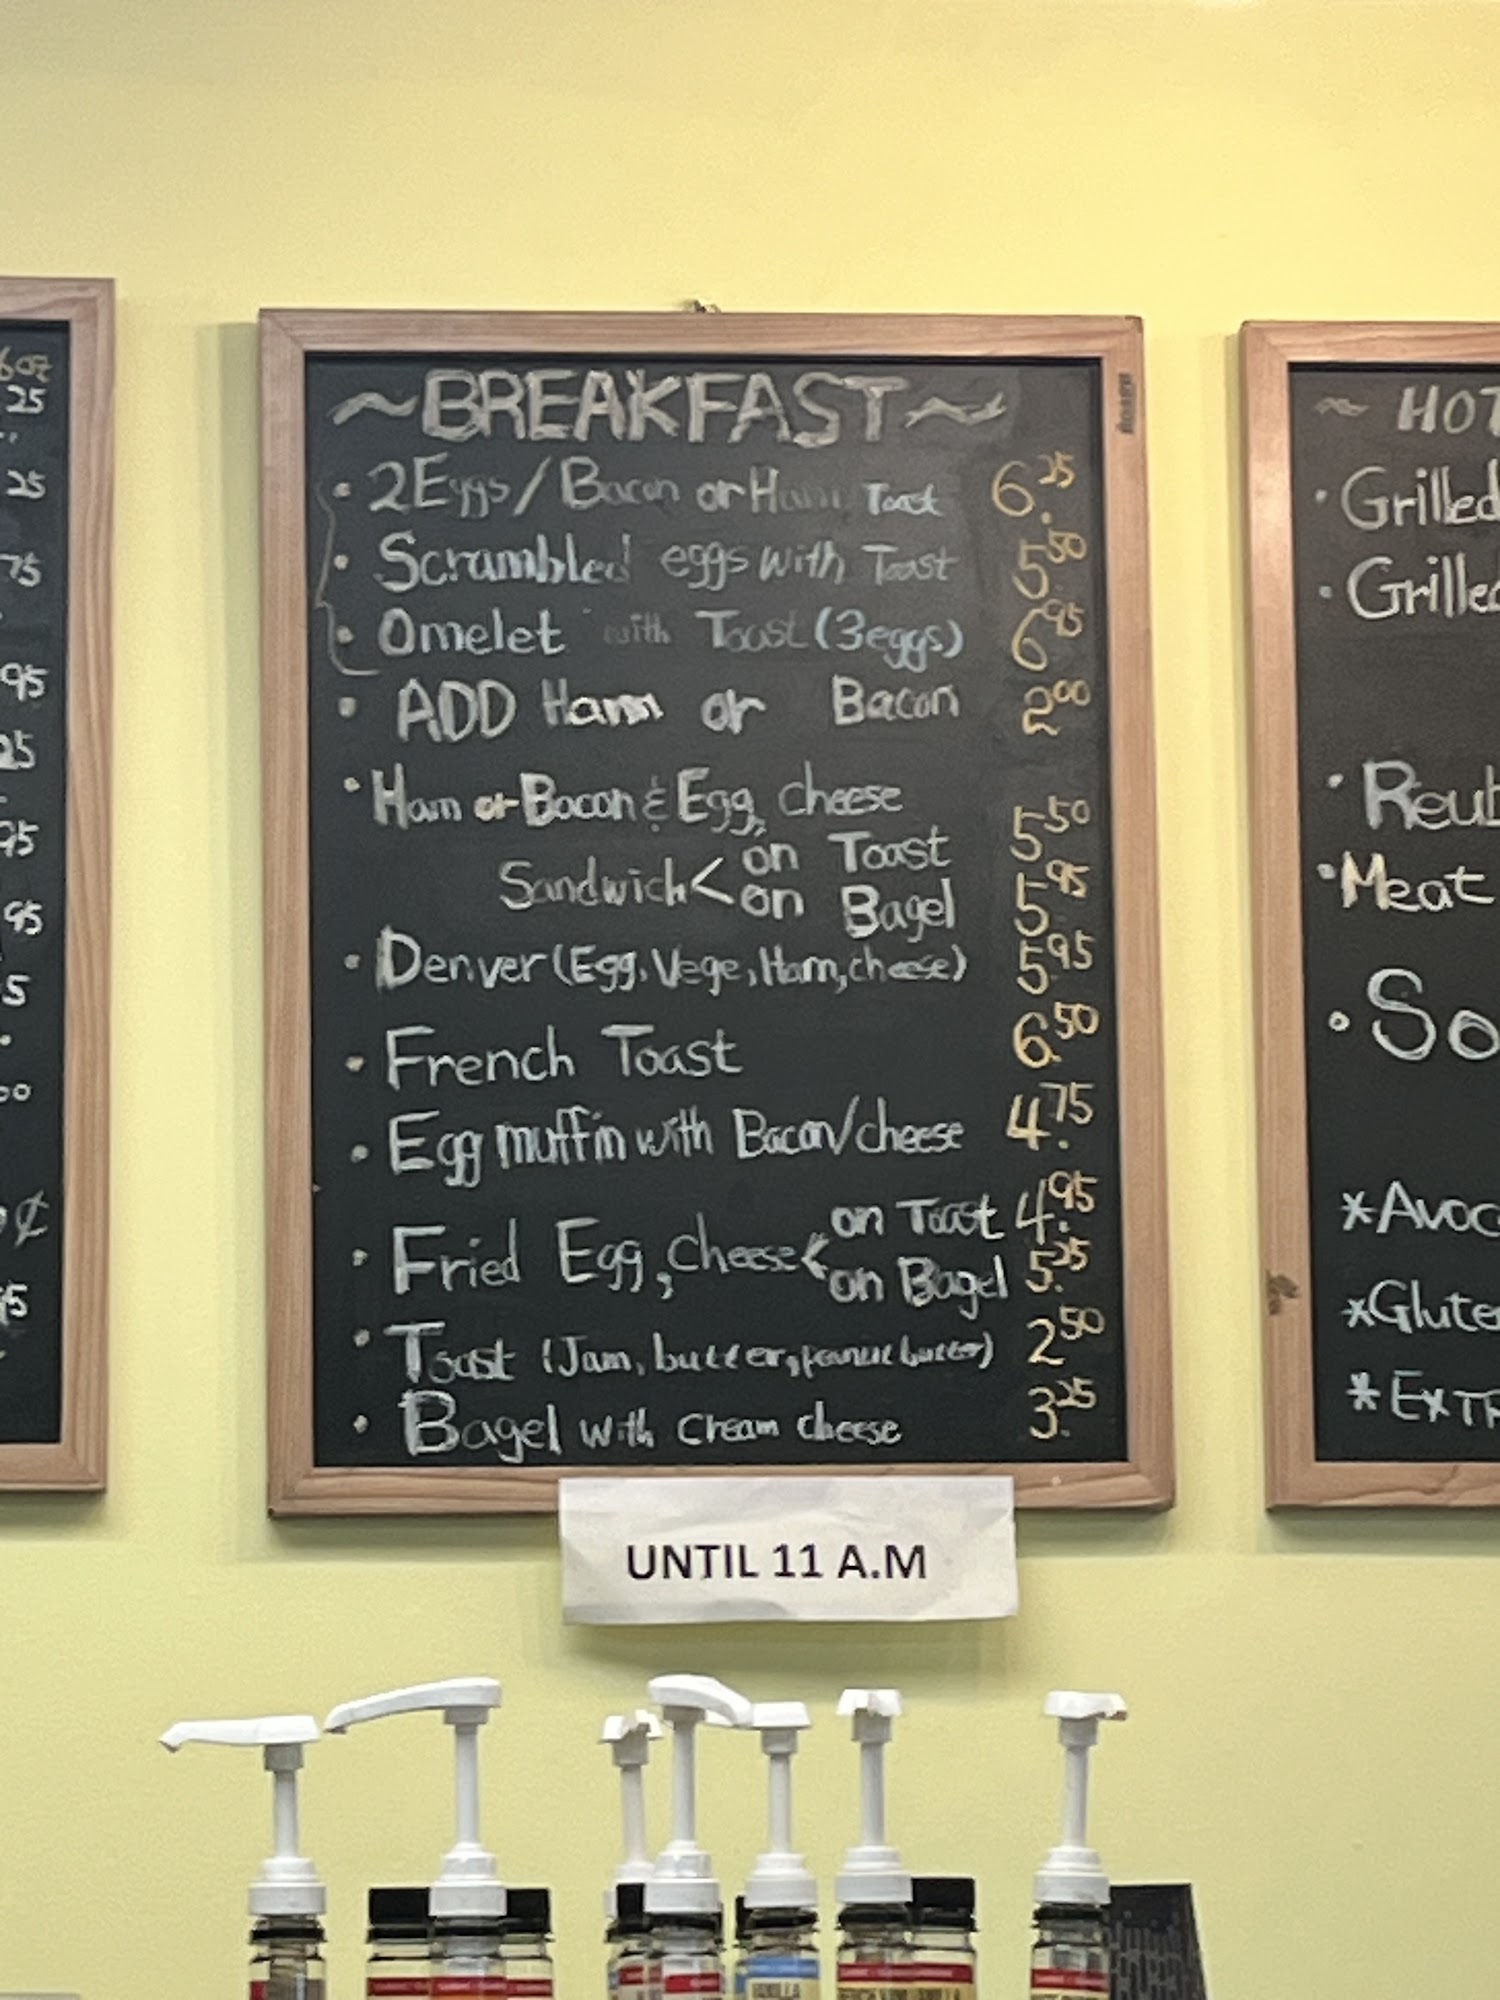 ~BREAKFAST~
• 2Eggs/Bacon or Ham Toast 6.25
• Scrambled eggs with Toast 5.50
• Omelet with Toast (3eggs) 6.95
• ADD Ham or Bacon 2.00
• Ham or Bacon & Egg, cheese
Sandwich < on Toast 5.50
on Bagel 5.95
• Denver (Egg, Vege, Ham, cheese) 5.95
• French Toast 6.50
• Egg muffin with Bacon/cheese 4.75
• Fried Egg, cheese < on Toast 4.95
on Bagel 5.25
• Toast (Jam, butter, peanut butter) 2.50
• Bagel with cream cheese 3.25
UNTIL 11 A.M
25
25
75
95
25
95
95
5
00
¢
95
~ HOT
• Grilled
• Grilled
• Reub
• Meat
• So
*Avoc
*Glute
*EXTR
VANILLA
FRENCH VANILLA